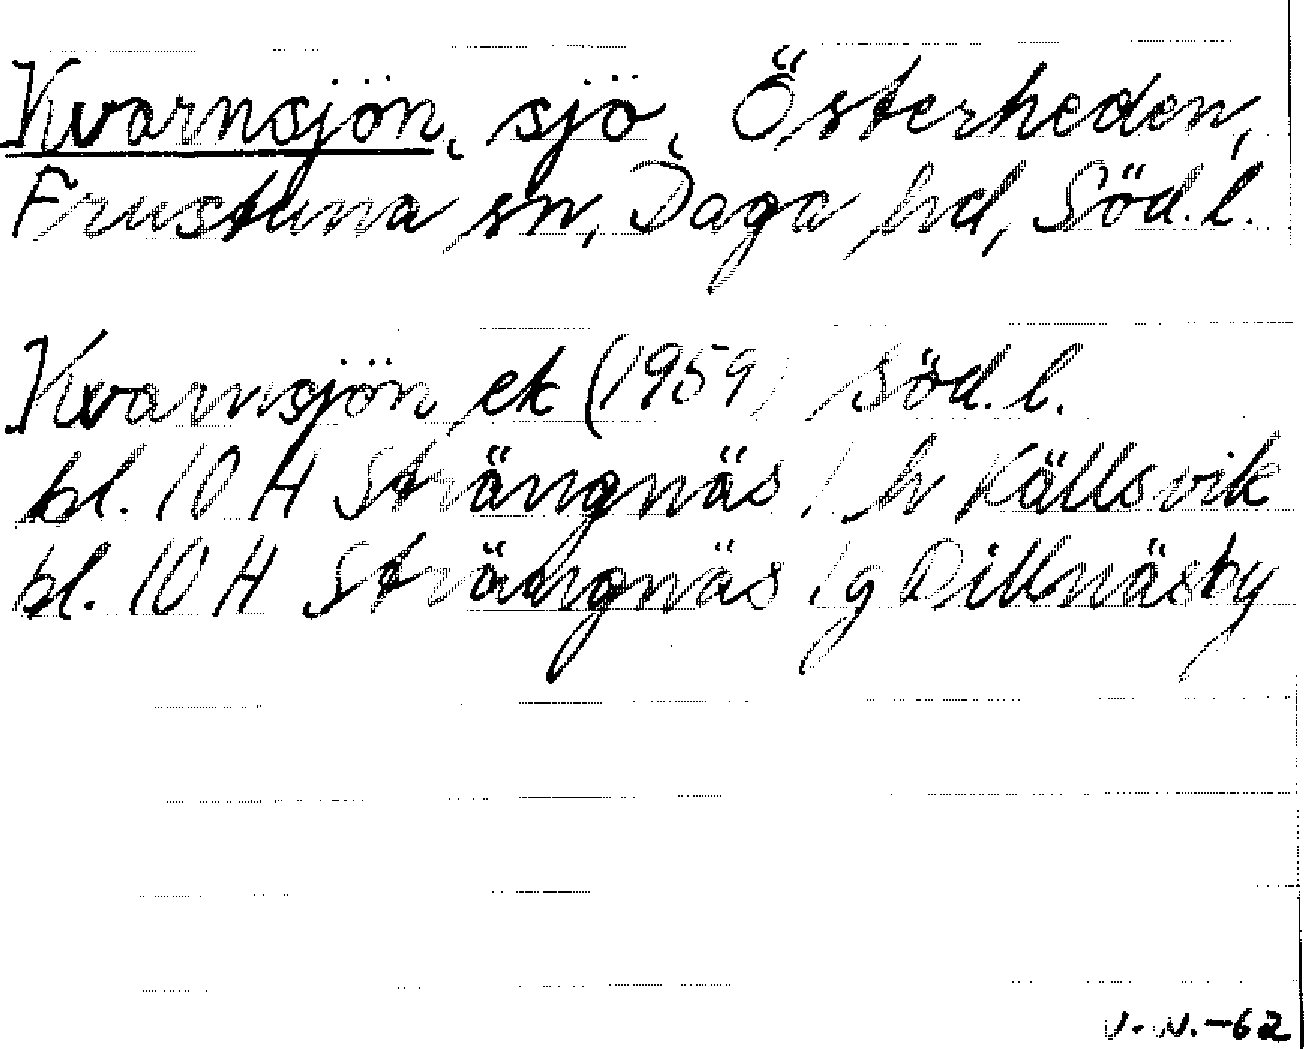 Kvarnsjön, sjö, Österheden,
Frustuna sn, Daga hd, Söd. l.
Kvarnsjön ek (1959) Söd. l.
bl. 10 H Strängnäs 1 h Källsvik
bl. 10 H Strängnäs 1 g Dillnäsby
V. N. -62